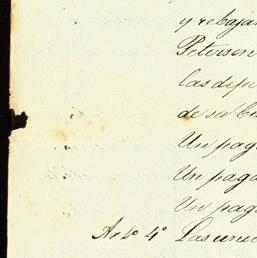 y rebajar
Petersen
las depe
de su C
Un pag
Un paga
Un pag
Art.º 4.º Las une